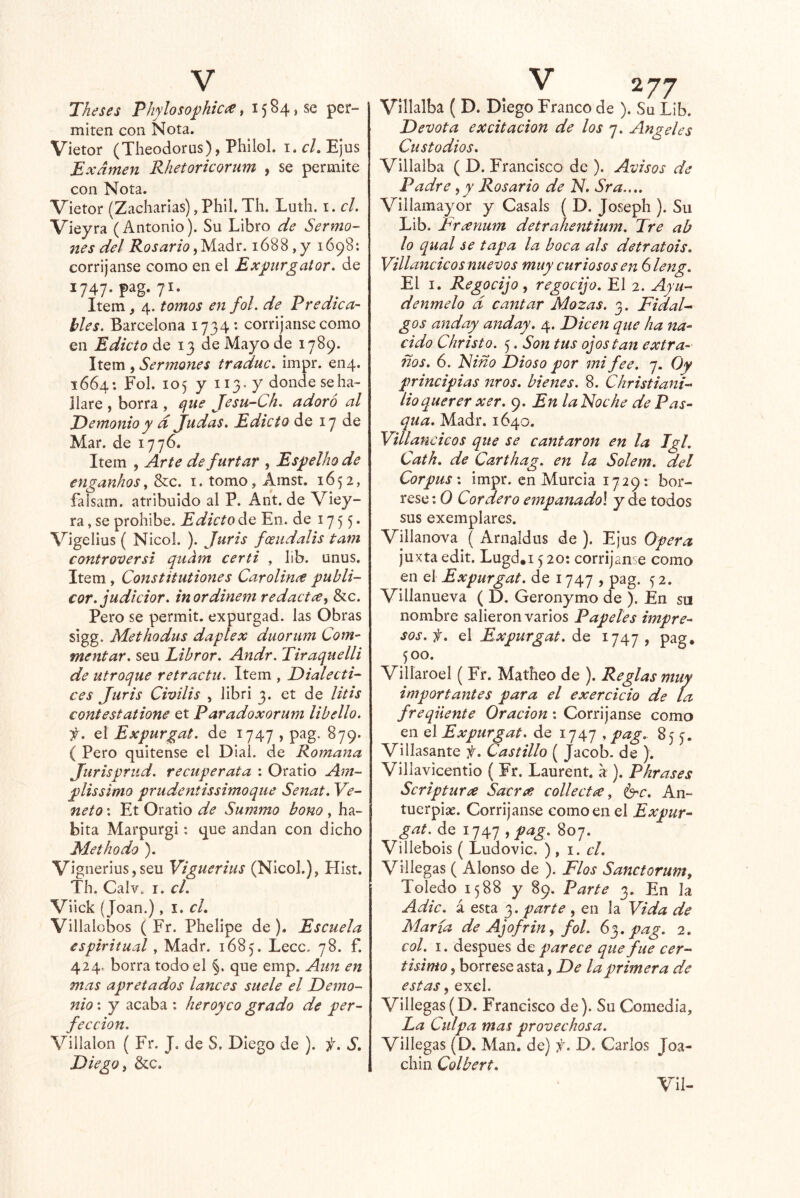 V
Theses Phylosophicæ, 1584, se per-
miten con Nota.
Vietor (Theodorus), Philol. 1. cl. Ejus
Exámen Rhetoricorum , se permite
con Nota.
Vietor (Zacharias), Phil. Th. Luth. 1. cl.
Vieyra (Antonio). Su Libro de Sermo-
nes del Rosario, Madr. 1688, y 1698:
corrijanse como en el Expurgator. de
1747. pag. 71.
Item, 4. tomos en fol. de Predica-
bles. Barcelona 1734: corrijanse como
en Edicto de 13 de Mayo de 1789.
Item, Sermones traduc. impr. en 4.
1664: Fol. 105 y 113. y donde se ha-
llare, borra, que Jesu-Ch. adoró al
Demonio y á Judas. Edicto de 17 de
Mar. de 1776.
Item , Arte de furtar , Espelho de
enganhos, &c. 1. tomo, Amst. 1652,
falsam. atribuido al P. Ant. de Viey-
ra, se prohibe. Edicto de En. de 1755.
Vigelius ( Nicol. ). Juris fœudalis tam
controversi quàm certi , lib. unus.
Item, Constitutiones Carolinæ publi-
cor. judicior. in ordinem redactæ, &c.
Pero se permit. expurgad. las Obras
sigg. Methodus daplex duorum Com-
mentar. seu Libror. Andr. Tiraquelli
de utroque retractu. Item , Dialecti-
ces Juris Civilis , libri 3. et de litis
contestatione et Paradoxorum libello.
℣. el Expurgat. de 1747, pag. 879.
( Pero quitense el Dial. de Romana
Jurisprud. recuperata : Oratio Am-
plissimo prudentissimoque Senat. Ve-
neto: Et Oratio de Summo bono, ha-
bita Marpurgi: que andan con dicho
Methodo ).
Vignerius, seu Viguerius (Nicol.), Hist.
Th. Calv. 1. cl.
Viick (Joan.), 1. cl.
Villalobos ( Fr. Phelipe de ). Escuela
espiritual, Madr. 1685. Lecc. 78. f.
424. borra todo el §. que emp. Aun en
mas apretados lances suele el Demo-
nio: y acaba : heroyco grado de per-
feccion.
Villalon ( Fr. J. de S. Diego de ). ℣. S.
Diego, &c.
V 277
Villalba ( D. Diego Franco de ). Su Lib.
Devota excitacion de los 7. Angeles
Custodios.
Villalba ( D. Francisco de ). Avisos de
Padre, y Rosario de N. Sra....
Villamayor y Casals ( D. Joseph ). Su
Lib. Frænum detrahentium. Tre ab
lo qual se tapa la boca als detratois.
Villancicos nuevos muy curiosos en 6 leng.
El 1. Regocijo, regocijo. El 2. Ayu-
denmelo á cantar Mozas. 3. Fidal-
gos anday anday. 4. Dicen que ha na-
cido Christo. 5. Son tus ojos tan extra-
ños. 6. Niño Dioso por mi fee. 7. Oy
principias nros. bienes. 8. Christiani-
lio querer xer. 9. En la Noche de Pas-
qua. Madr. 1640.
Villancicos que se cantaron en la Igl.
Cath. de Carthag. en la Solem. del
Corpus: impr. en Murcia 1729: bor-
rese: O Cordero empanado! y de todos
sus exemplares.
Villanova ( Arnaldus de ). Ejus Opera
juxta edit. Lugd. 1520: corrijanse como
en el Expurgat. de 1747 , pag. 52.
Villanueva ( D. Geronymo de ). En su
nombre salieron varios Papeles impre-
sos. ℣. el Expurgat. de 1747 , pag.
500.
Villaroel ( Fr. Matheo de ). Reglas muy
importantes para el exercicio de la
freqüente Oracion: Corrijanse como
en el Expurgat. de 1747 , pag. 855.
Villasante ℣. Castillo ( Jacob. de ).
Villavicentio ( Fr. Laurent. à ). Phrases
Scripturæ Sacræ collectæ, &c. An-
tuerpiæ. Corrijanse como en el Expur-
gat. de 1747, pag. 807.
Villebois ( Ludovic. ) , 1. cl.
Villegas ( Alonso de ). Flos Sanctorum,
Toledo 1588 y 89. Parte 3. En la
Adic. á esta 3. parte , en la Vida de
María de Ajofrin, fol. 63. pag. 2.
col. 1. despues de parece que fue cer-
tisimo, borrese asta, De la primera de
estas, exel.
Villegas (D. Francisco de). Su Comedia,
La Culpa mas provechosa.
Villegas (D. Man. de) ℣. D. Carlos Joa-
chin Colbert.
Vil-